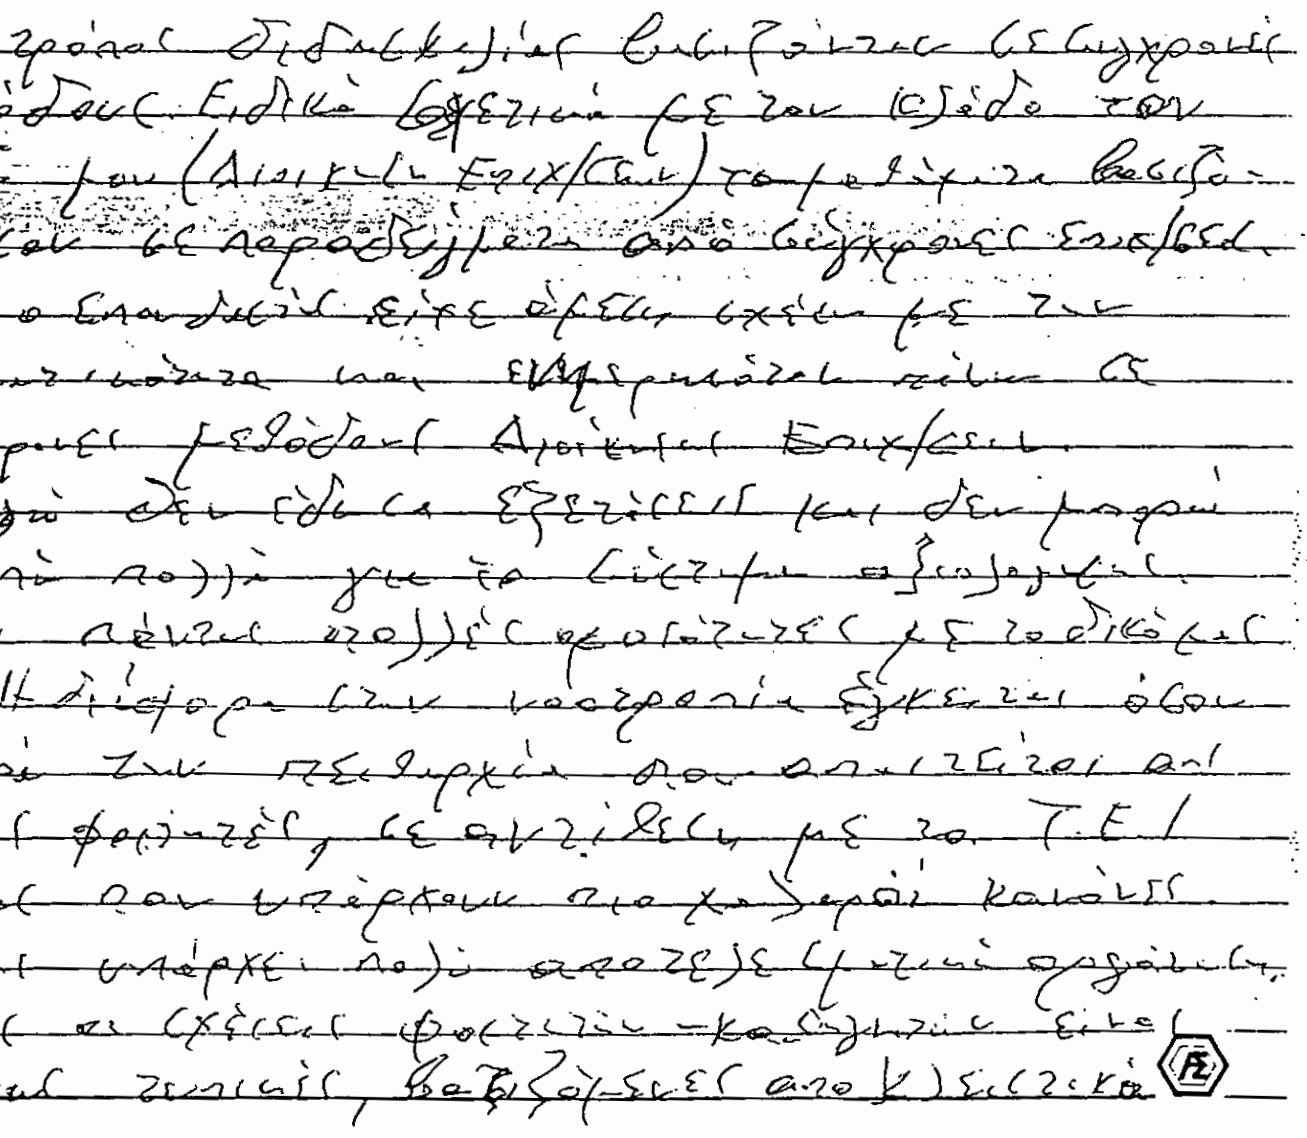 τρόπος διδασκαλίας βασιζόνταν σε σύγχρονες
όδους. Ειδικά σχετικά με τον κλάδο των
μου (Διοίκηση Επιχ/σεων) τα μαθήματα βασιζό-
ταν σε παραδείγματα από σύγχρονες επιχ/σεις.
ο σπουδαστής είχε άμεση σχέση με την
τικότητα και ενημερωνόταν πάνω σε
ρονες μεθόδους Διοίκησης Επιχ/σεων.
δεν έδωσα εξετάσεις και δεν μπορώ
πώ πολλά για το σύστημα αξιολόγησης.
πάντως πολλές ομοιότητες με το δικό μας
Η διάφορα στην νοοτροπία έγκειται όσον
ορά την πειθαρχία που απαιτείται απ'
ς φοιτητές, σε αντίθεση με το Τ.Ε.Ι
ας που υπάρχουν πιο χαλαροί κανόνες.
υπάρχει πολύ αποτελεσματική οργάνωση,
οι σχέσεις φοιτητών - καθηγητών είναι
τυπικές, βασιζόμενες αποκλειστικά
ΡΣ